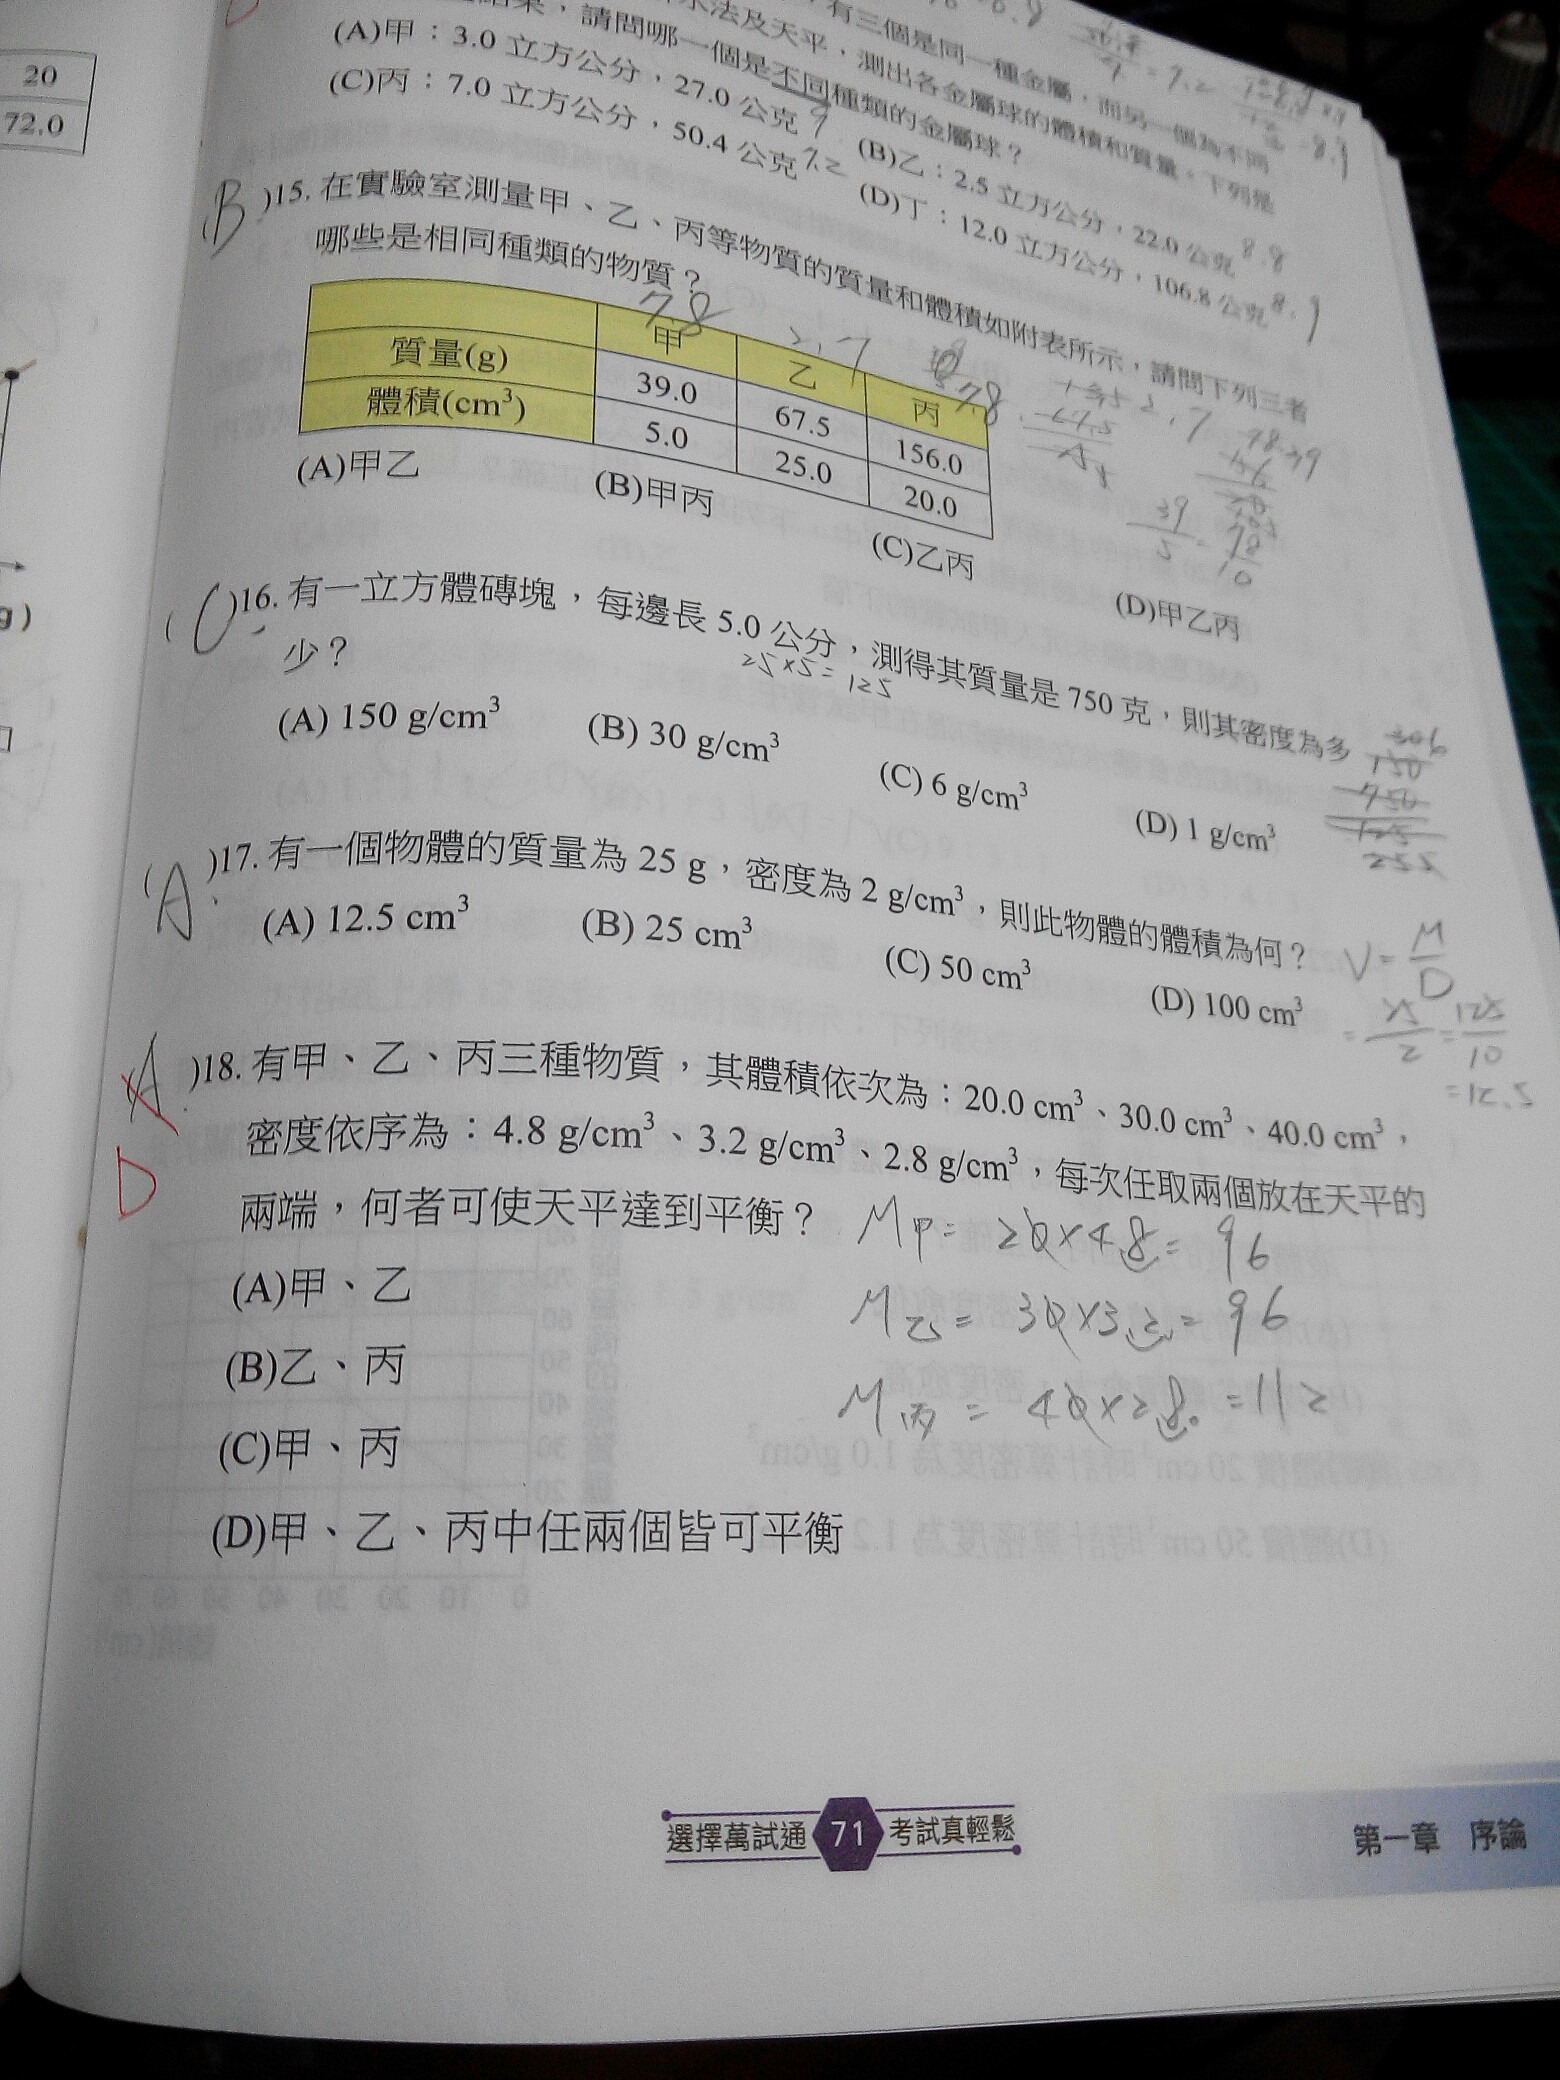 20
72.0
g)
有三個是同一種金屬，而另一個為不同
水法及天平，測出各金屬球的體積和質量。下列是
結果，請問哪一個是不同種類的金屬球？
(A)甲：3.0 立方公分，27.0 公克 9
(B)乙：2.5 立方公分，22.0 公克 8.8
(C)丙：7.0 立方公分，50.4 公克 7.2
(D)丁：12.0 立方公分，106.8 公克 8.9
= 7.2
= 8.9
(B)15. 在實驗室測量甲、乙、丙等物質的質量和體積如附表所示，請問下列三者
哪些是相同種類的物質？
7.8 2.7 7.8
甲 乙 丙
質量(g) 39.0 67.5 156.0
體積(cm³) 5.0 25.0 20.0
2.7
39/5 = 78/10
(A)甲乙 (B)甲丙 (C)乙丙 (D)甲乙丙
(C)16. 有一立方體磚塊，每邊長 5.0 公分，測得其質量是 750 克，則其密度為多
少？
25×5=125
(A) 150 g/cm³ (B) 30 g/cm³ (C) 6 g/cm³ (D) 1 g/cm³
150
750
125
(A)17. 有一個物體的質量為 25 g，密度為 2 g/cm³，則此物體的體積為何？
(A) 12.5 cm³ (B) 25 cm³ (C) 50 cm³ (D) 100 cm³
V = M/D
= 25/2 = 125/10
= 12.5
(A)18. 有甲、乙、丙三種物質，其體積依次為：20.0 cm³、30.0 cm³、40.0 cm³，
D
密度依序為：4.8 g/cm³、3.2 g/cm³、2.8 g/cm³，每次任取兩個放在天平的
兩端，何者可使天平達到平衡？
M甲 = 20×4.8 = 96
M乙 = 30×3.2 = 96
M丙 = 40×2.8 = 112
(A)甲、乙
(B)乙、丙
(C)甲、丙
(D)甲、乙、丙中任兩個皆可平衡
選擇萬試通 71 考試真輕鬆
第一章 序論